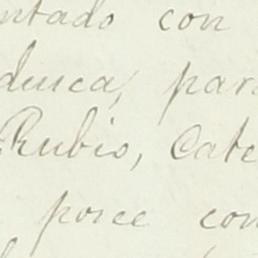 ntado con
duca, para
Rubio, Cate
posee con